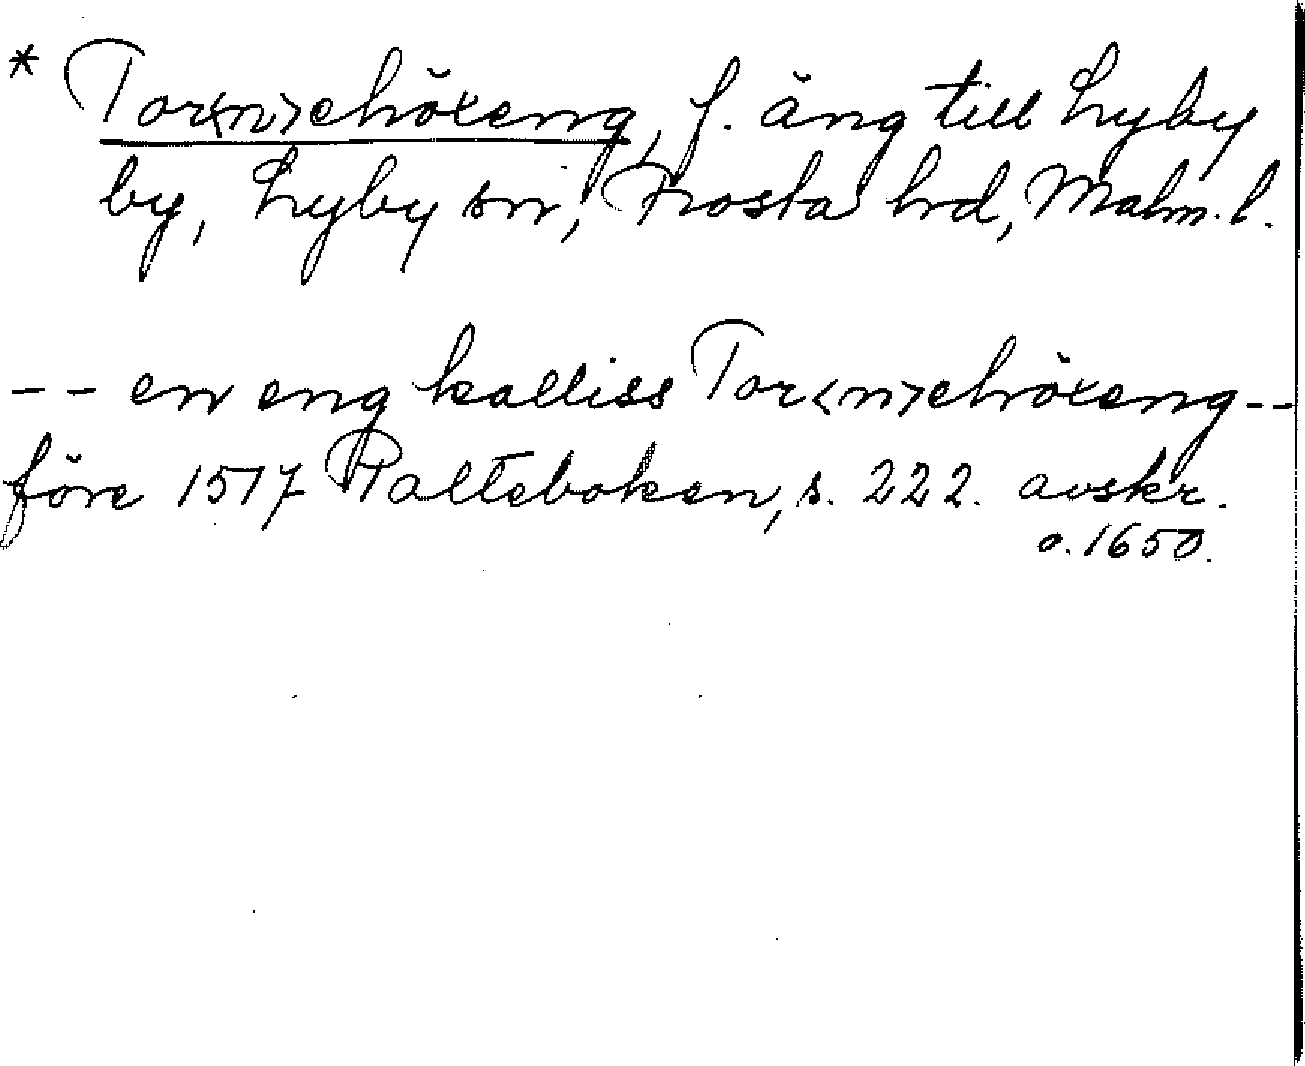 * Tor<n>ehöxeng, f. äng till Lyby
by, Lyby sn, Frosta hrd, Malm. l.
-- en eng kalliss Tor<n>ehöxeng --
före 1517 Palteboken, s. 222. avskr.
o. 1650.